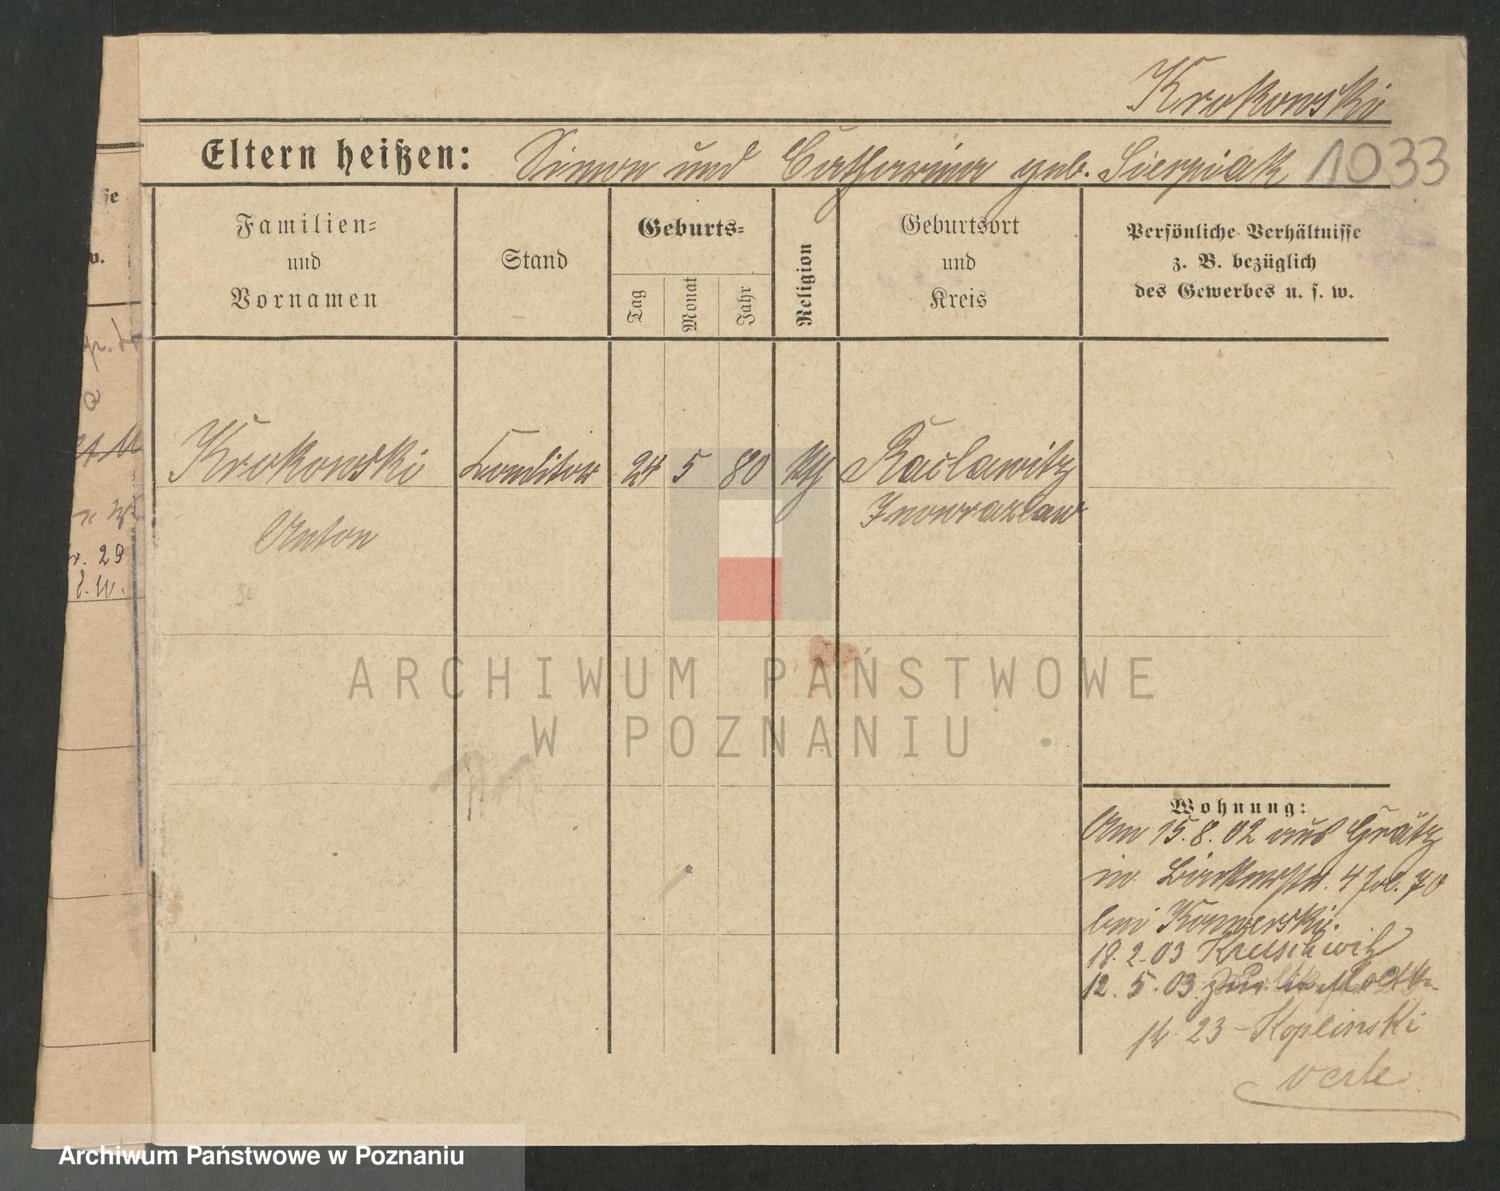 Krokowski
Eltern heißen: Simon und Catharina geb. Sierpiak 1033
Familien=
und
Vornamen
Stand
Geburts=
Tag
Monat
Jahr
Religion
Geburtsort
und
Kreis
Persönliche Verhältnisse
z. B. bezüglich
des Gewerbes u. s. w.
Krokowski Konditor 24 5 80 kth Raclawitz
Inowrazlaw
Anton
Wohnung:
Am 15.8.02 aus Grätz
in 4 70
bei
18.2.03 Kretschwitz
12.5.03
23 - Koplinski
ARCHIWUM PAŃSTWOWE
W POZNANIU
29
Archiwum Państwowe w Poznaniu